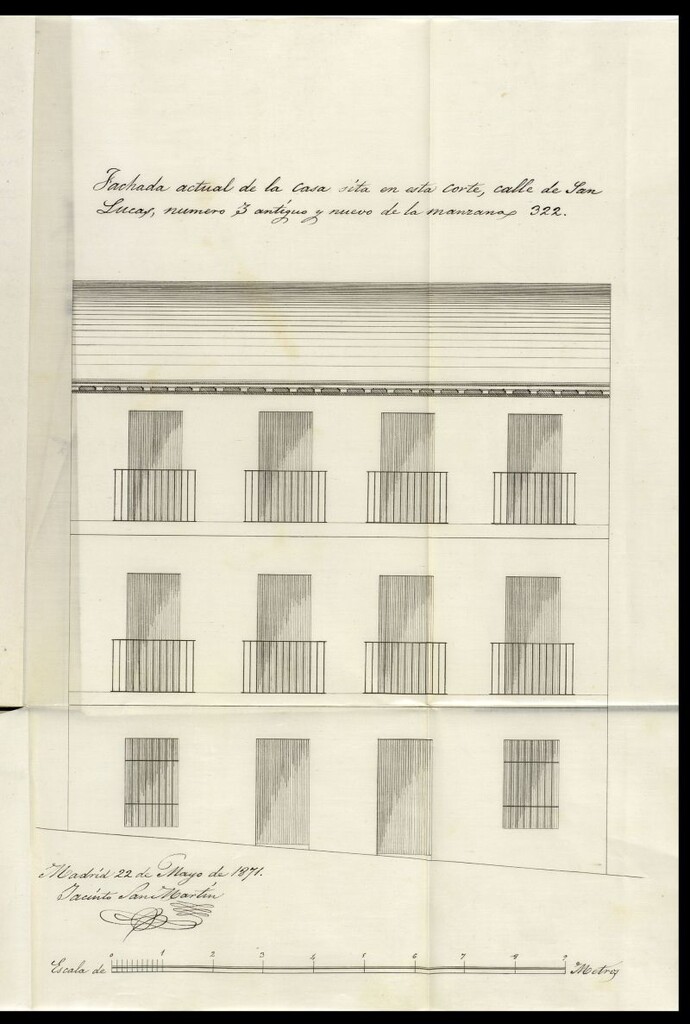 Fachada actual de la casa sita en esta corte, calle de San
Lucas, numero 3 antiguo y nuevo de la manzana 322.
Madrid 22 de Mayo de 1871.
Jacinto San Martín
0 1 2 3 4 5 6 7 8 9
Escala de Metros